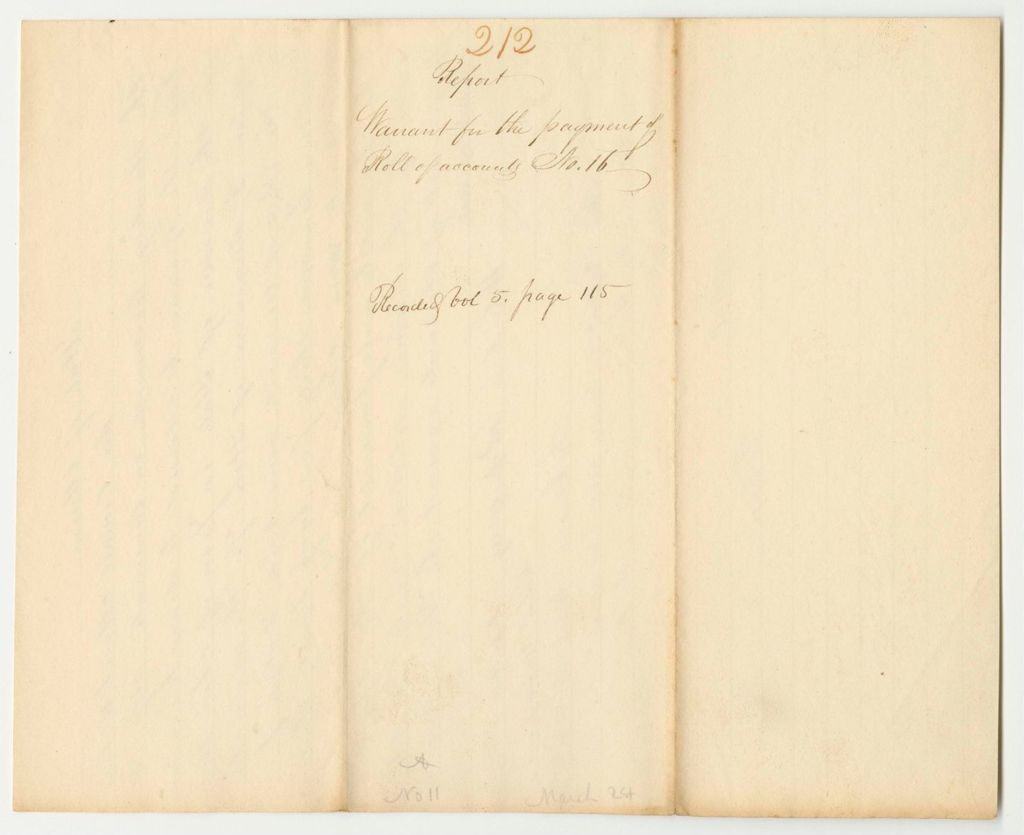 212
Report
Warrant for the payment of
Roll of accounts No. 16
Recorded vol 5. page 115
A
No 11 March 24